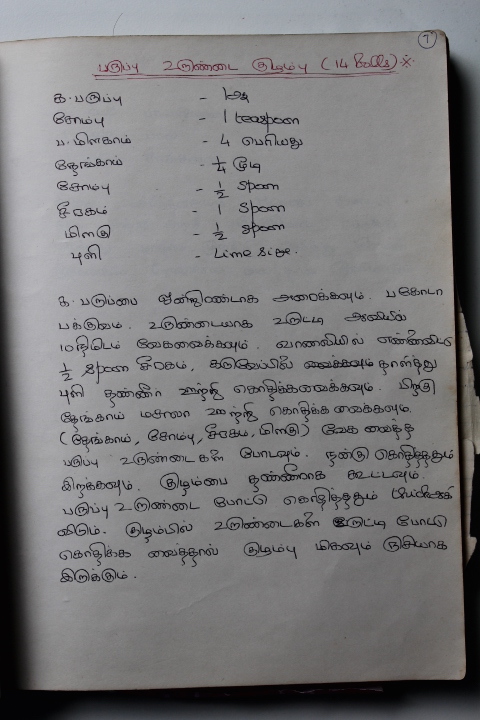 7
பருப்பு உருண்டை குழம்பு (14 Balls) ※
க. பருப்பு -
சோம்பு - 1 teaspoon
ப. மிளகாய் - 4 பெரியது
தேங்காய் - 1/4 மூடி
சோம்பு - 1/2 spoon
சீரகம் - 1 spoon
மிளகு - 1/2 spoon
புளி - Lime size.
க. பருப்பை ஒன்றிரண்டாக அரைக்கவும். பகோடா
பக்குவம். உருண்டையாக உருட்டி ஆவியில்
10 நிமிடம் வேகவைக்கவும். வாணலியில் எண்ணெய்
1/2 spoon சீரகம், கருவேப்பில் தாளித்து
புளி தண்ணீர் ஊற்றி கொதிக்கவைக்கவும். பிறகு
தேங்காய் மசாலா ஊற்றி கொதிக்க வைக்கவும்.
(தேங்காய், சோம்பு, சீரகம், மிளகு) வேக வைத்த
பருப்பு உருண்டைகள் போடவும். நன்கு கொதித்ததும்
இறக்கவும். குழம்பை தண்ணீராக கூட்டவும்.
பருப்பு உருண்டை போட்டு கொதித்ததும்
விடும். குழம்பில் உருண்டைகள் உருட்டி போட்டு
கொதிக்க வைத்தால் குழம்பு மிகவும் ருசியாக
இருக்கும்.